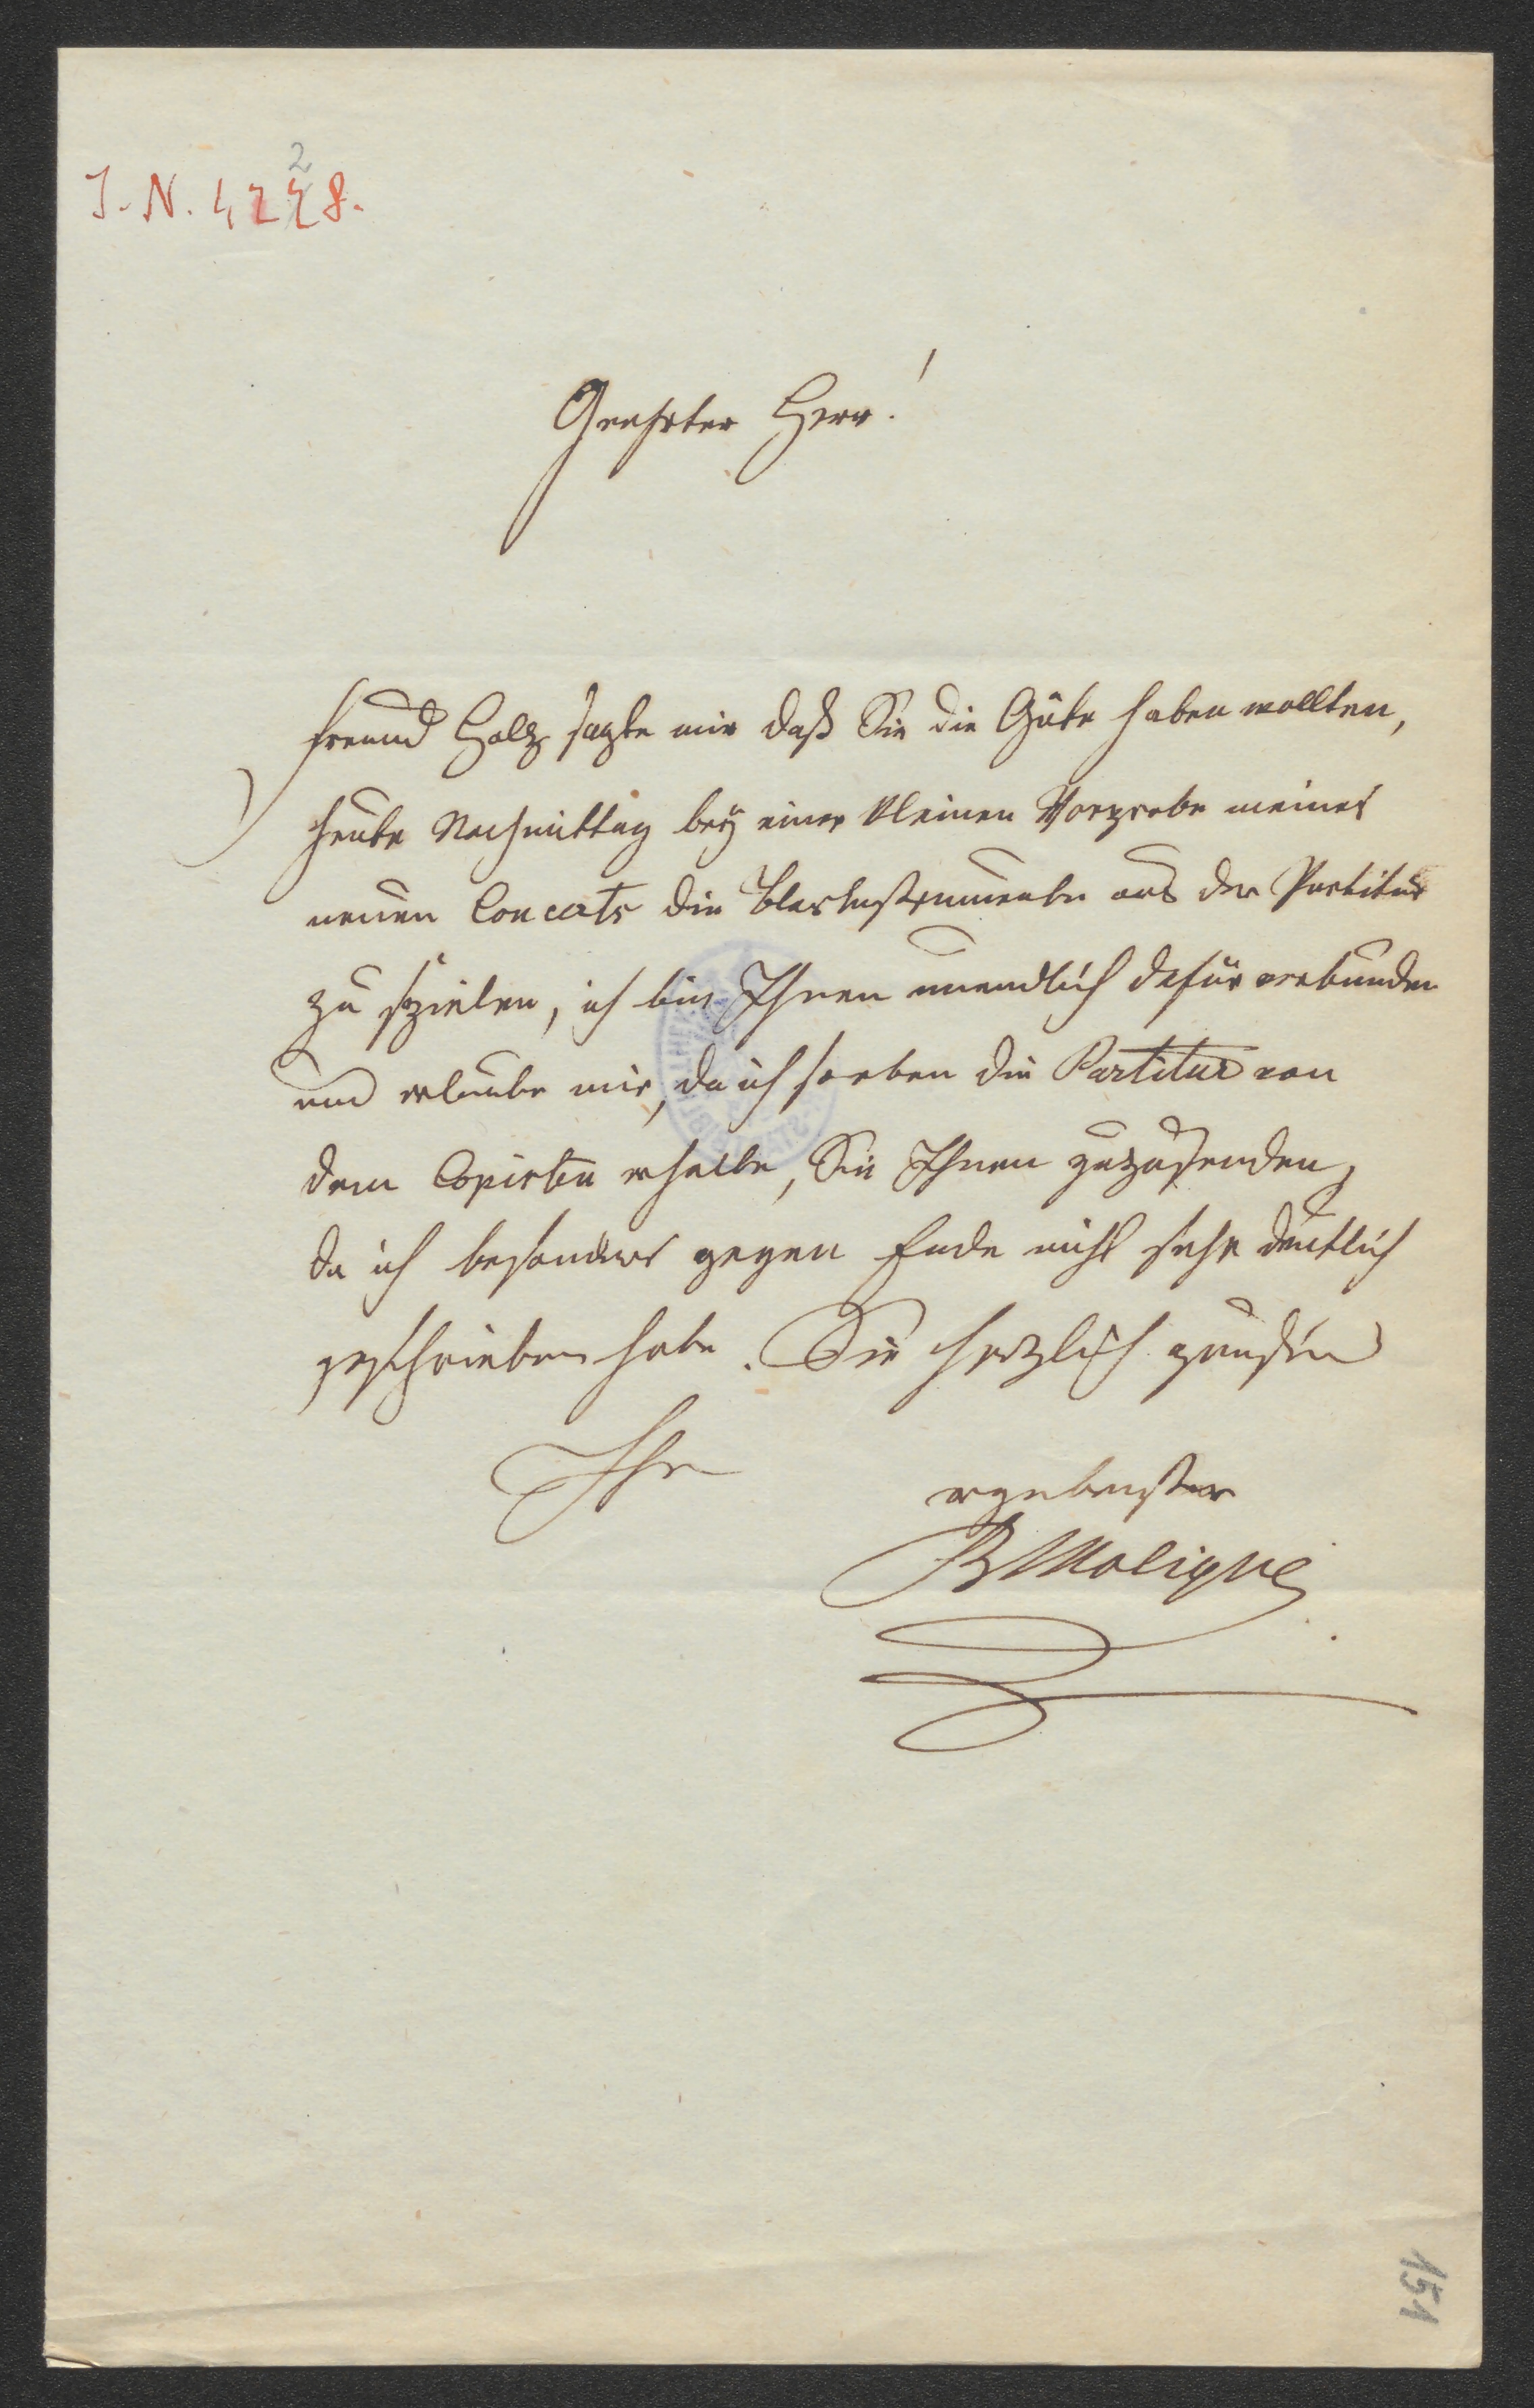 2
J. N. 4228.
Geehrter Herr!
Freund Holz sagte mir daß Sie die Güte haben wollten,
heute Nachmittag bey einer kleinen Vorprobe meines
neuen Concerts die Blasinstrumente aus der Partitur
zu spielen, ich bin Ihnen unendlich dafür verbunden
und erlaube mir, da ich soeben die Partitur von
dem Copisten erhalte, Sie Ihnen zuzusenden,
da ich besonders gegen Ende nicht sehr deutlich
geschrieben habe. Sie herzlich grüßend
Ihr
ergebenster
B Molique
151